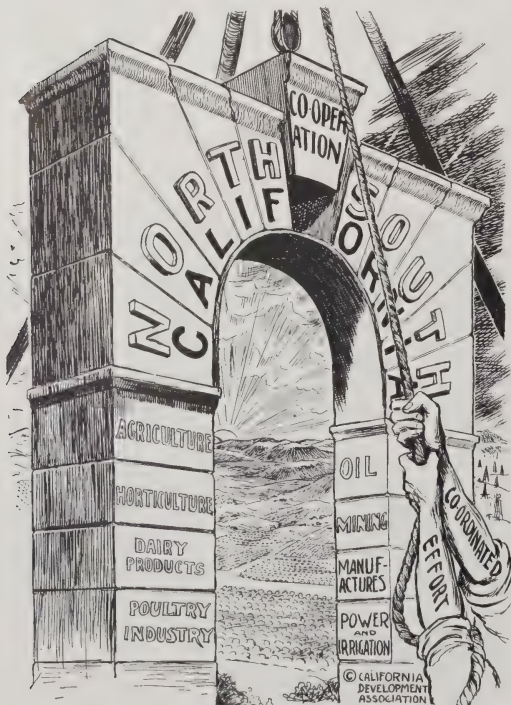 CO-OPER
ATION
NORTH
SOUTH
CALIFORNIA
AGRICULTURE
HORTICULTURE
DAIRY
PRODUCTS
POULTRY
INDUSTRY
OIL
MINING
MANUF-
ACTURES
POWER
AND
IRRIGATION
CO-ORDINATED
EFFORT
© CALIFORNIA
DEVELOPMENT
ASSOCIATION